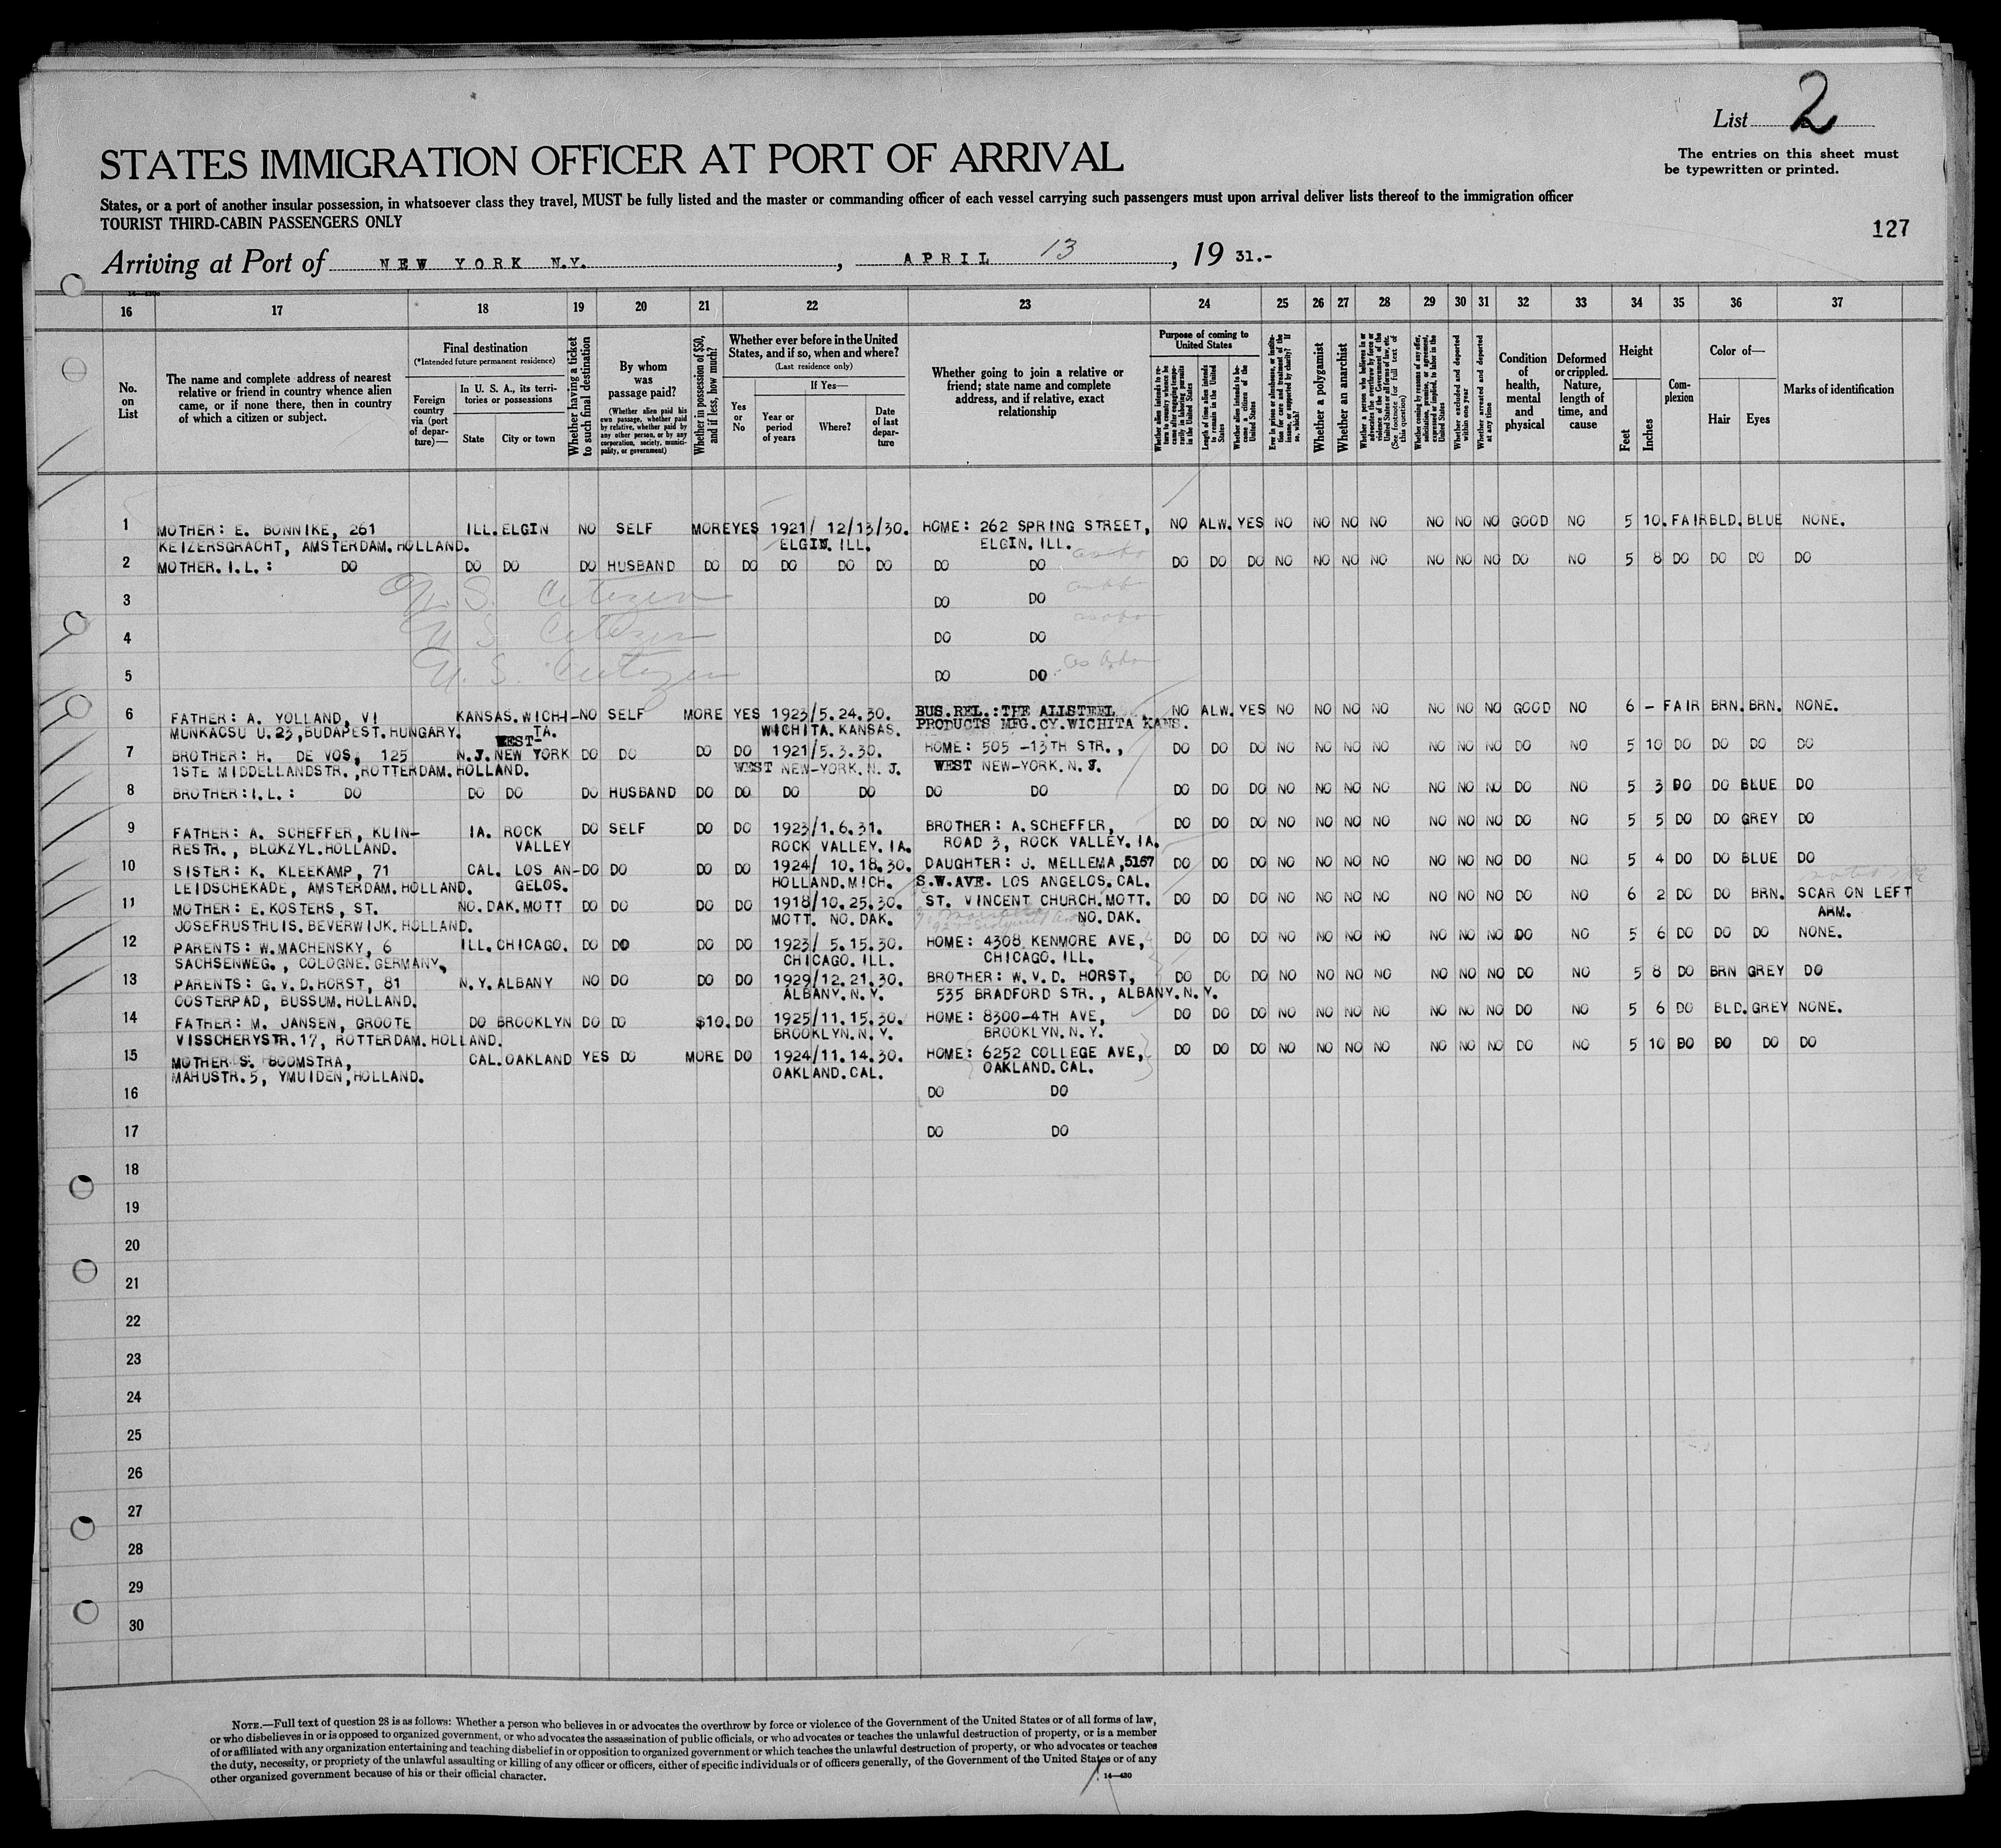 List 2
The entries on this sheet must
be typewritten or printed.
STATES IMMIGRATION OFFICER AT PORT OF ARRIVAL
States, or a port of another insular possession, in whatsoever class they travel, MUST be fully listed and the master or commanding officer of each vessel carrying such passengers must upon arrival deliver lists thereof to the immigration officer
TOURIST THIRD-CABIN PASSENGERS ONLY
127
Arriving at Port of NEW YORK N.Y. , APRIL 13 , 19 31.-
16 17 18 19 20 21 22 23 24 25 26 27 28 29 30 31 32 33 34 35 36 37
No. on List
The name and complete address of nearest relative or friend in country whence alien came, or if none there, then in country of which a citizen or subject.
Final destination
(*Intended future permanent residence)
Foreign country via (port of departure)—
In U. S. A., its territories or possessions
State
City or town
Whether having a ticket to such final destination
By whom was passage paid?
(Whether alien paid his own passage, whether paid by relative, whether paid by any other person, or by any corporation, society, municipality, or government)
Whether in possession of $50, and if less, how much?
Whether ever before in the United States, and if so, when and where?
(Last residence only)
Yes or No
If Yes—
Year or period of years
Where?
Date of last departure
Whether going to join a relative or friend; state name and complete address, and if relative, exact relationship
Purpose of coming to United States
Whether alien intends to return to country whence he came after engaging temporarily in laboring pursuits in the United States
Length of time alien intends to remain in the United States
Whether alien intends to become a citizen of the United States
Ever in prison or almshouse, or institution for care and treatment of the insane, or supported by charity? If so, which?
Whether a polygamist
Whether an anarchist
Whether a person who believes in or advocates the overthrow by force or violence of the Government of the United States or all forms of law, etc. (See footnote for full text of this question)
Whether coming by reason of any offer, solicitation, promise, or agreement, expressed or implied, to labor in the United States
Whether excluded and deported within one year
Whether arrested and deported at any time
Condition of health, mental and physical
Deformed or crippled. Nature, length of time, and cause
Height
Feet
Inches
Complexion
Color of—
Hair
Eyes
Marks of identification
1 MOTHER: E. BONNIKE, 261 ILL. ELGIN NO SELF MORE YES 1921/ 12/13/30. HOME: 262 SPRING STREET, NO ALW. YES NO NO NO NO NO NO NO GOOD NO 5 10. FAIR BLD. BLUE NONE.
KEIZERSGRACHT, AMSTERDAM. HOLLAND. ELGIN. ILL. ELGIN. ILL.
2 MOTHER. I.L.: DO DO DO DO HUSBAND DO DO DO DO DO DO DO DO DO DO NO NO NO NO NO NO NO DO NO 5 8 DO DO DO DO
3 U.S. Citizen DO DO
4 U.S. Citizen DO DO
5 U.S. Citizen DO DO
6 FATHER: A. YOLLAND, VI KANSAS. WICHI- NO SELF MORE YES 1923/5.24.30. BUS.REL.:THE ALLSTEEL NO ALW. YES NO NO NO NO NO NO NO GOOD NO 6 - FAIR BRN. BRN. NONE.
MUNKACSU U.23, BUDAPEST. HUNGARY. TA. WICHITA. KANSAS. PRODUCTS MFG.CY.WICHITA KANS.
WEST-
7 BROTHER: H. DE VOS, 125 N.J. NEW YORK DO DO DO DO 1921/5.3.30. HOME: 505 -13TH STR., DO DO DO NO NO NO NO NO NO NO DO NO 5 10 DO DO DO DO
1STE MIDDELLANDSTR., ROTTERDAM. HOLLAND. WEST NEW-YORK. N.J. WEST NEW-YORK. N.J.
8 BROTHER: I.L.: DO DO DO DO HUSBAND DO DO DO DO DO DO DO DO DO NO NO NO NO NO NO NO DO NO 5 3 DO DO BLUE DO
9 FATHER: A. SCHEFFER, KUIN- IA. ROCK DO SELF DO DO 1923/1.6.31. BROTHER: A. SCHEFFER, DO DO DO NO NO NO NO NO NO NO DO NO 5 5 DO DO GREY DO
RESTR., BLOKZYL. HOLLAND. VALLEY ROCK VALLEY. IA. ROAD 3, ROCK VALLEY. IA.
10 SISTER: K. KLEEKAMP, 71 CAL. LOS AN- DO DO DO DO 1924/ 10.18.30. DAUGHTER: J. MELLEMA, 5167 DO DO DO NO NO NO NO NO NO NO DO NO 5 4 DO DO BLUE DO
LEIDSCHEKADE, AMSTERDAM. HOLLAND. GELOS. HOLLAND. MICH. S.W.AVE. LOS ANGELOS. CAL.
11 MOTHER: E. KOSTERS, ST. NO. DAK. MOTT DO DO DO DO 1918/10.25.30. ST. VINCENT CHURCH. MOTT. DO DO DO NO NO NO NO NO NO NO DO NO 6 2 DO DO BRN. SCAR ON LEFT
JOSEFRUSTHUIS. BEVERWIJK. HOLLAND. MOTT. NO. DAK. NO. DAK. ARM.
12 PARENTS: W. MACHENSKY, 6 ILL. CHICAGO. DO DO DO DO 1923/ 5.15.30. HOME: 4308 KENMORE AVE, DO DO DO NO NO NO NO NO NO NO DO NO 5 6 DO DO DO NONE.
SACHSENWEG., COLOGNE. GERMANY, CHICAGO. ILL. CHICAGO. ILL.
13 PARENTS: G.V.D. HORST, 81 N.Y. ALBANY NO DO DO DO 1929/12.21.30. BROTHER: W.V.D. HORST, DO DO DO NO NO NO NO NO NO NO DO NO 5 8 DO BRN GREY DO
OOSTERPAD, BUSSUM. HOLLAND. ALBANY. N.Y. 535 BRADFORD STR., ALBANY. N.Y.
14 FATHER: M. JANSEN, GROOTE DO BROOKLYN DO DO $10. DO 1925/11.15.30. HOME: 8300-4TH AVE, DO DO DO NO NO NO NO NO NO NO DO NO 5 6 DO BLD. GREY NONE.
VISSCHERYSTR. 17, ROTTERDAM. HOLLAND. BROOKLYN. N.Y. BROOKLYN. N.Y.
15 MOTHER S. BOOMSTRA, CAL. OAKLAND YES DO MORE DO 1924/11.14.30. HOME: 6252 COLLEGE AVE, DO DO DO NO NO NO NO NO NO NO DO NO 5 10 DO DO DO DO
MAHUSTR. 5, YMUIDEN, HOLLAND. OAKLAND. CAL. OAKLAND. CAL.
16 DO DO
17 DO DO
18
19
20
21
22
23
24
25
26
27
28
29
30
NOTE.—Full text of question 28 is as follows: Whether a person who believes in or advocates the overthrow by force or violence of the Government of the United States or of all forms of law,
or who disbelieves in or is opposed to organized government, or who advocates the assassination of public officials, or who advocates or teaches the unlawful destruction of property, or is a member
of or affiliated with any organization entertaining and teaching disbelief in or opposition to organized government or which teaches the unlawful destruction of property, or who advocates or teaches
the duty, necessity, or propriety of the unlawful assaulting or killing of any officer or officers, either of specific individuals or of officers generally, of the Government of the United States or of any
other organized government because of his or their official character.
14—430